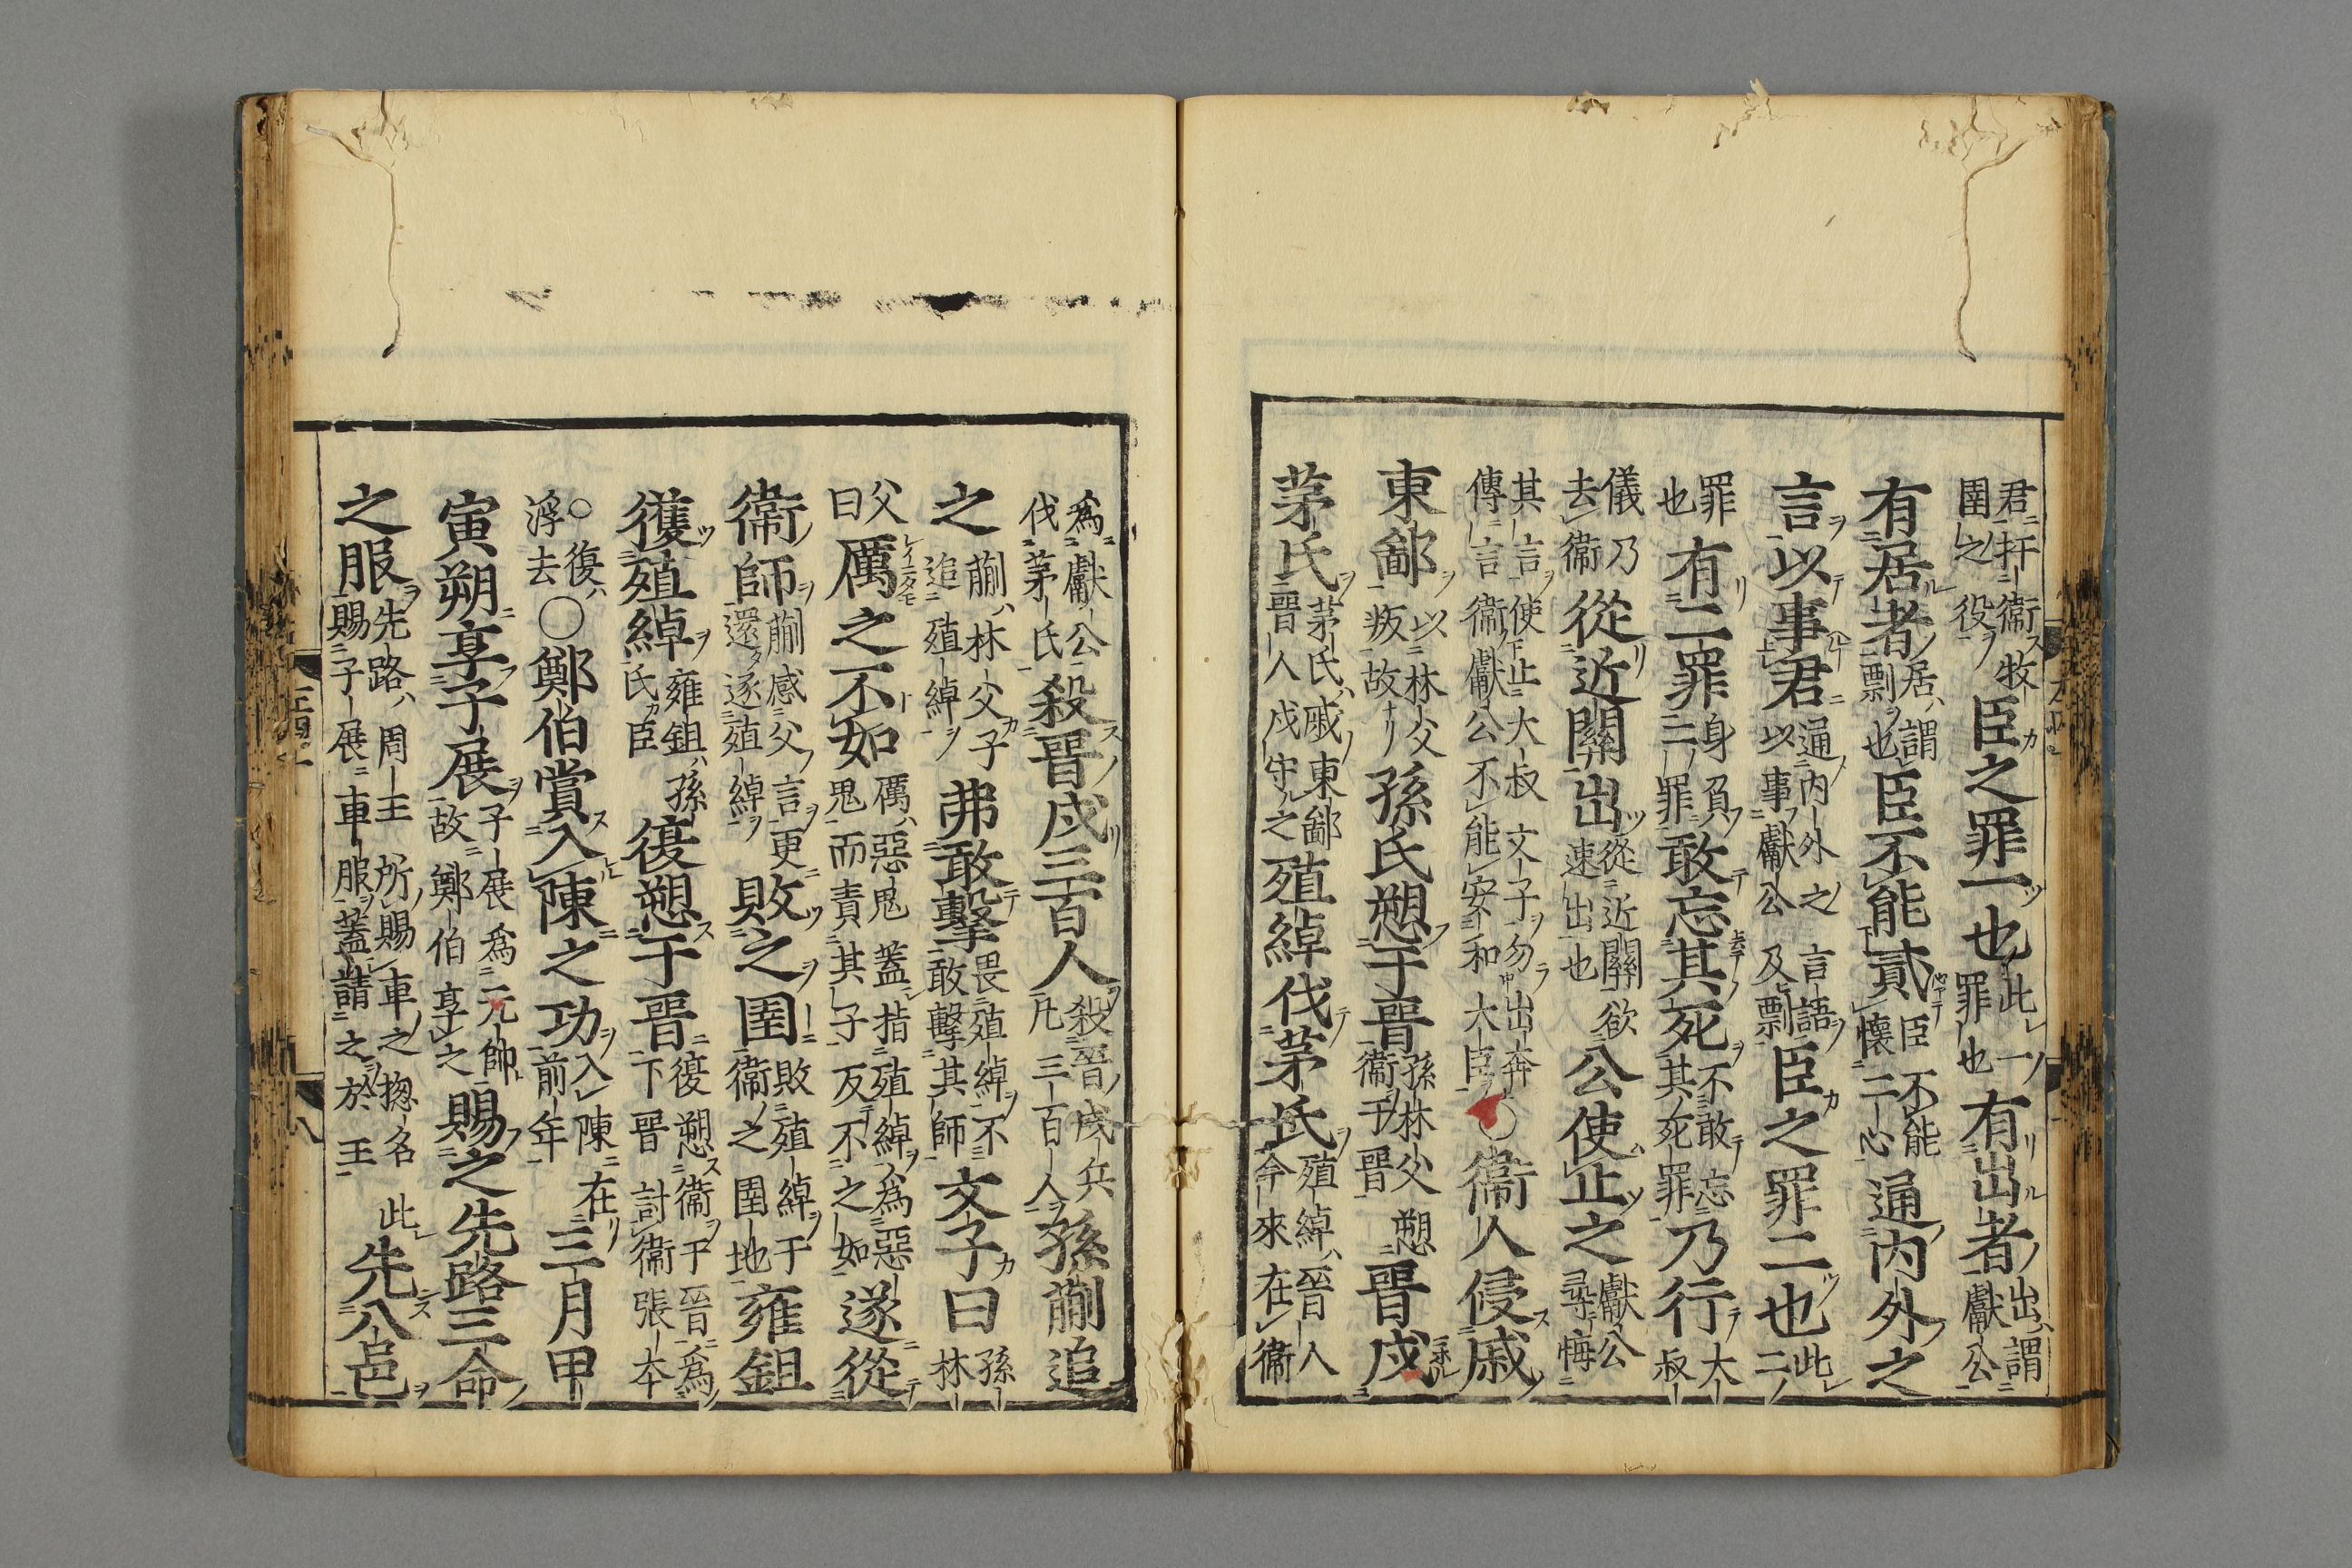 君扞衛牧圉之役臣之罪一也此一罪也有出者出謂獻公
有居者居謂剽也臣不能貳臣不能懷二心通内外之
言以事君通内外之言語以事獻公及剽臣之罪二也此二
罪也有二罪身負二罪敢忘其死不敢忘其死罪乃行大叔
儀乃去衛從近關出從近關欲速出也公使止之獻公尋悔
其言使止大叔文子勿出奔傳言衛獻公不能安和大臣○衛人侵戚
東鄙以林父叛故孫氏愬于晉孫林父愬衛于晉晉戍
茅氏茅氏戚東鄙晉人戍守之殖綽伐茅氏殖綽晉人今來在衛
為獻公伐茅氏殺晉戍三百人殺晉戍兵凡三百人孫蒯追
之蒯林父子追殖綽弗敢擊畏殖綽不敢擊其師文子曰孫林
父曰厲之不如厲惡鬼蓋指殖綽為惡鬼而責其子反不之如遂從
衛師蒯感父言更還逐殖綽敗之圉敗殖綽于衛之圉地雍鉏
獲殖綽雍鉏孫氏臣復愬于晉復愬衛于晉為下晉討衛張本
○復浮去○鄭伯賞入陳之功入陳在前年三月甲
寅朔享子展子展為元帥故鄭伯享之賜之先路三命
之服先路周王所賜車之揔名此賜子展車服蓋請之於王先八邑